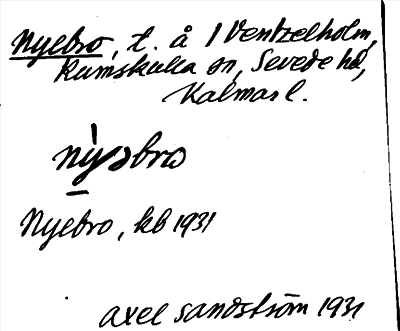 Nyebro, t. å 1 Ventzelholm,
Rumskulla sn, Sevede hd,
Kalmar l.
nyebro
Nyebro, kb 1931
Axel Sandström 1931